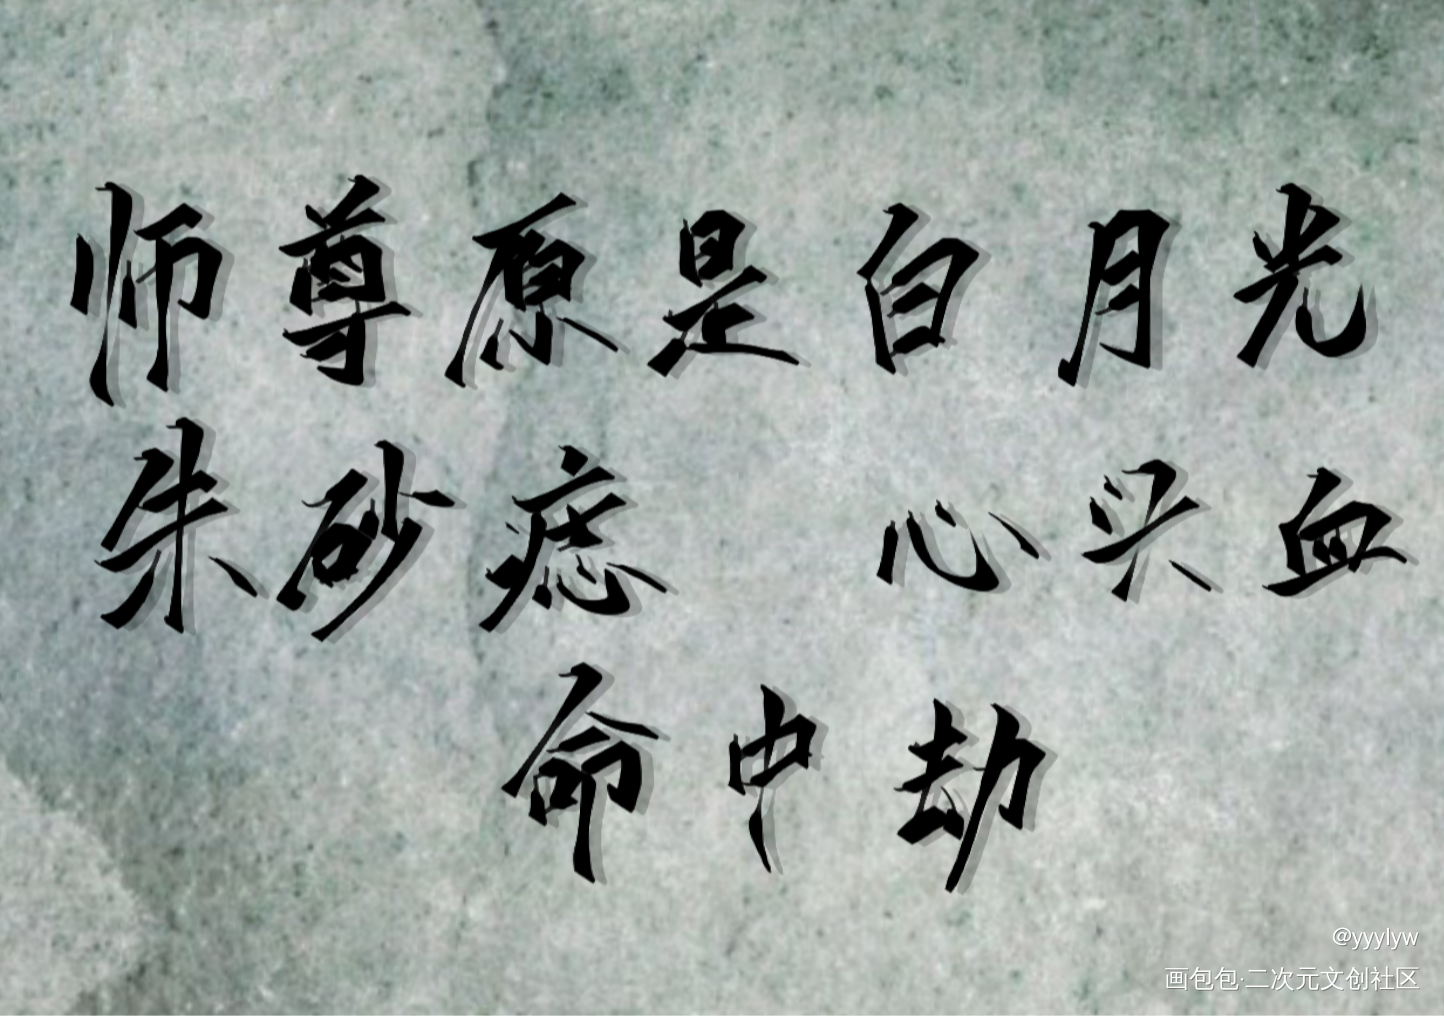 师尊原是白月光
朱砂痣 心头血
命中劫
@yyylyw
画包包·二次元文创社区